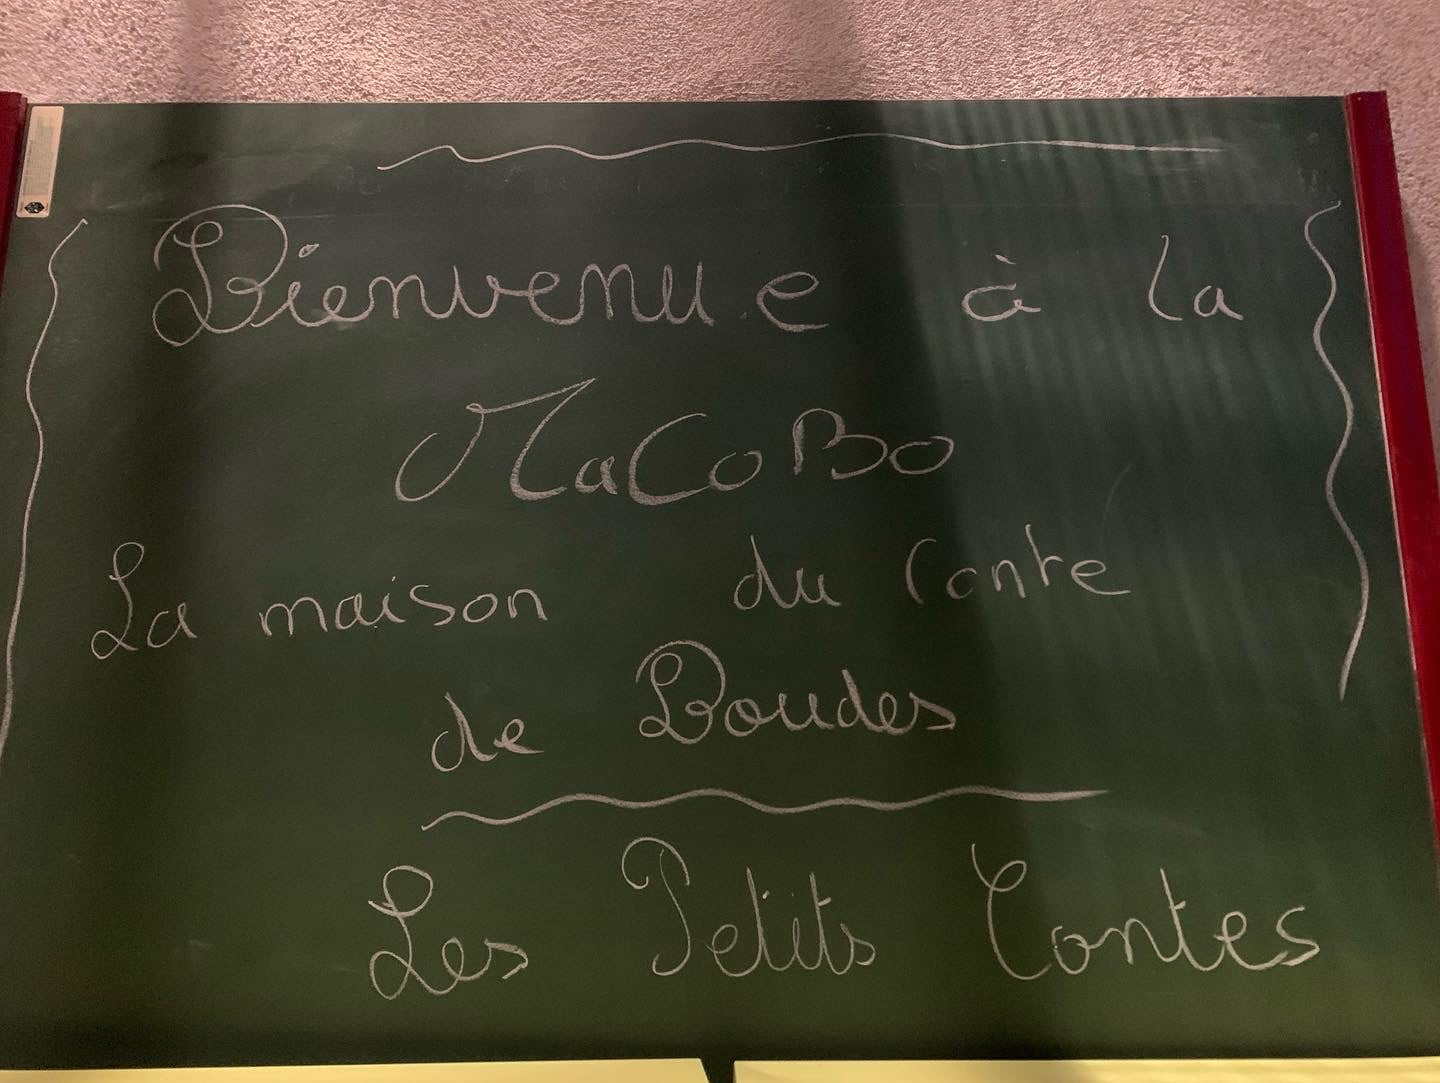 Bienvenue à la
MaCoBo
La maison du Conte
de Boudes
Les Petits Contes